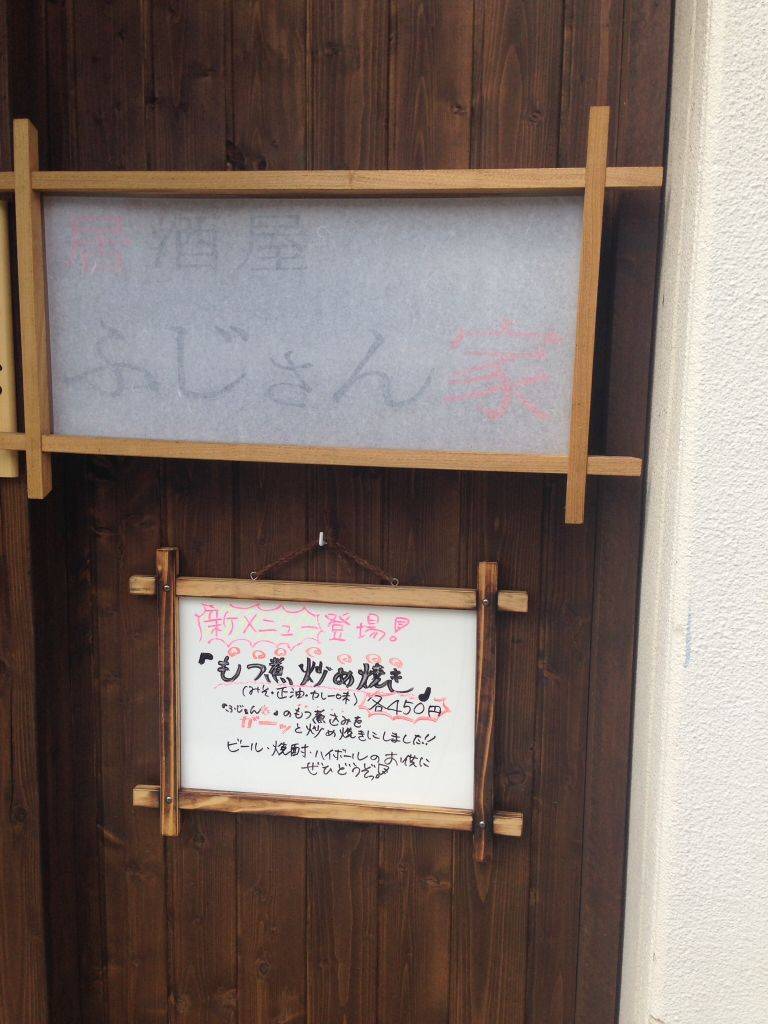 居酒屋
ふじさん家
新メニュー登場!
「もつ煮炒め焼き」
(みそ・正油・カレー味) 各450円
「ふじさん家」のもつ煮込みを
ガーッと炒め焼きにしました!!
ビール・焼酎・ハイボールのお供に
ぜひどうぞ♪